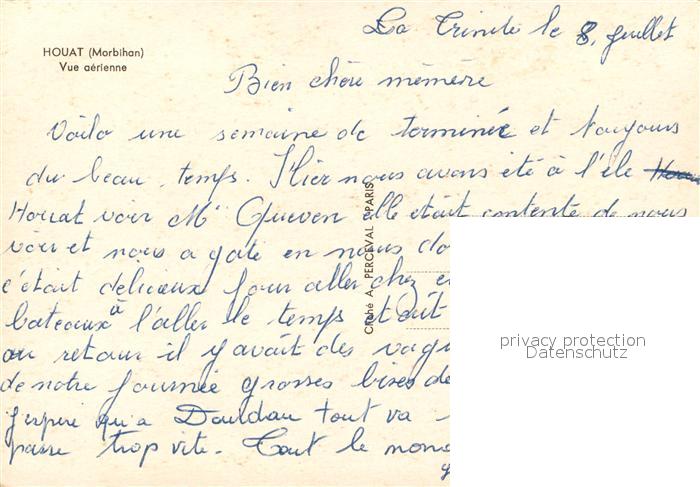 La Trinité le 8. juillet
HOUAT (Morbihan)
Vue aérienne
Bien chère mémère
Voila une semaine de terminée et toujours
du beau temps. Hier nous avons été à l'éle
Houat voir Me Gueven elle etait contente de nous
voir et nous a gaté en nous
c'était delicieux pour aller chez
bateaux à l'aller le temps etait
au retour il y avait des
de notre journée grosses bises de
j'espere qu'a Dourdan tout va
passe trop vite. Tout le
Cliché A. PERCEVAL - PARIS
privacy protection
Datenschutz